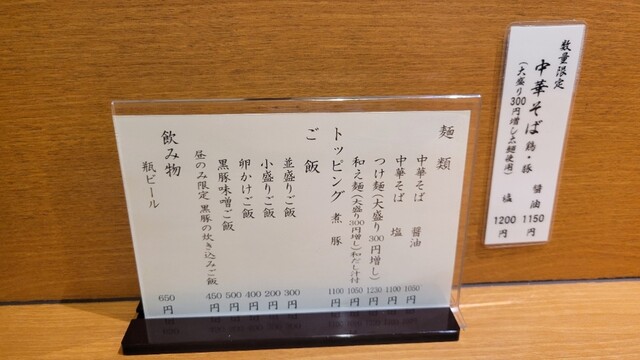 麺類
中華そば 醤油 1050円
中華そば 塩 1100円
つけ麺(大盛り300円増し) 1230円
和え麺(大盛り300円増し)和だし汁付 1050円
トッピング 煮豚 1100円
ご飯
並盛りご飯 300円
小盛りご飯 200円
卵かけご飯 400円
黒豚味噌ご飯 500円
昼のみ限定 黒豚の炊き込みご飯 450円
飲み物
瓶ビール 650円
数量限定
中華そば 鶏・豚 醤油 1150円
塩 1200円
(大盛り300円増し太麺使用)